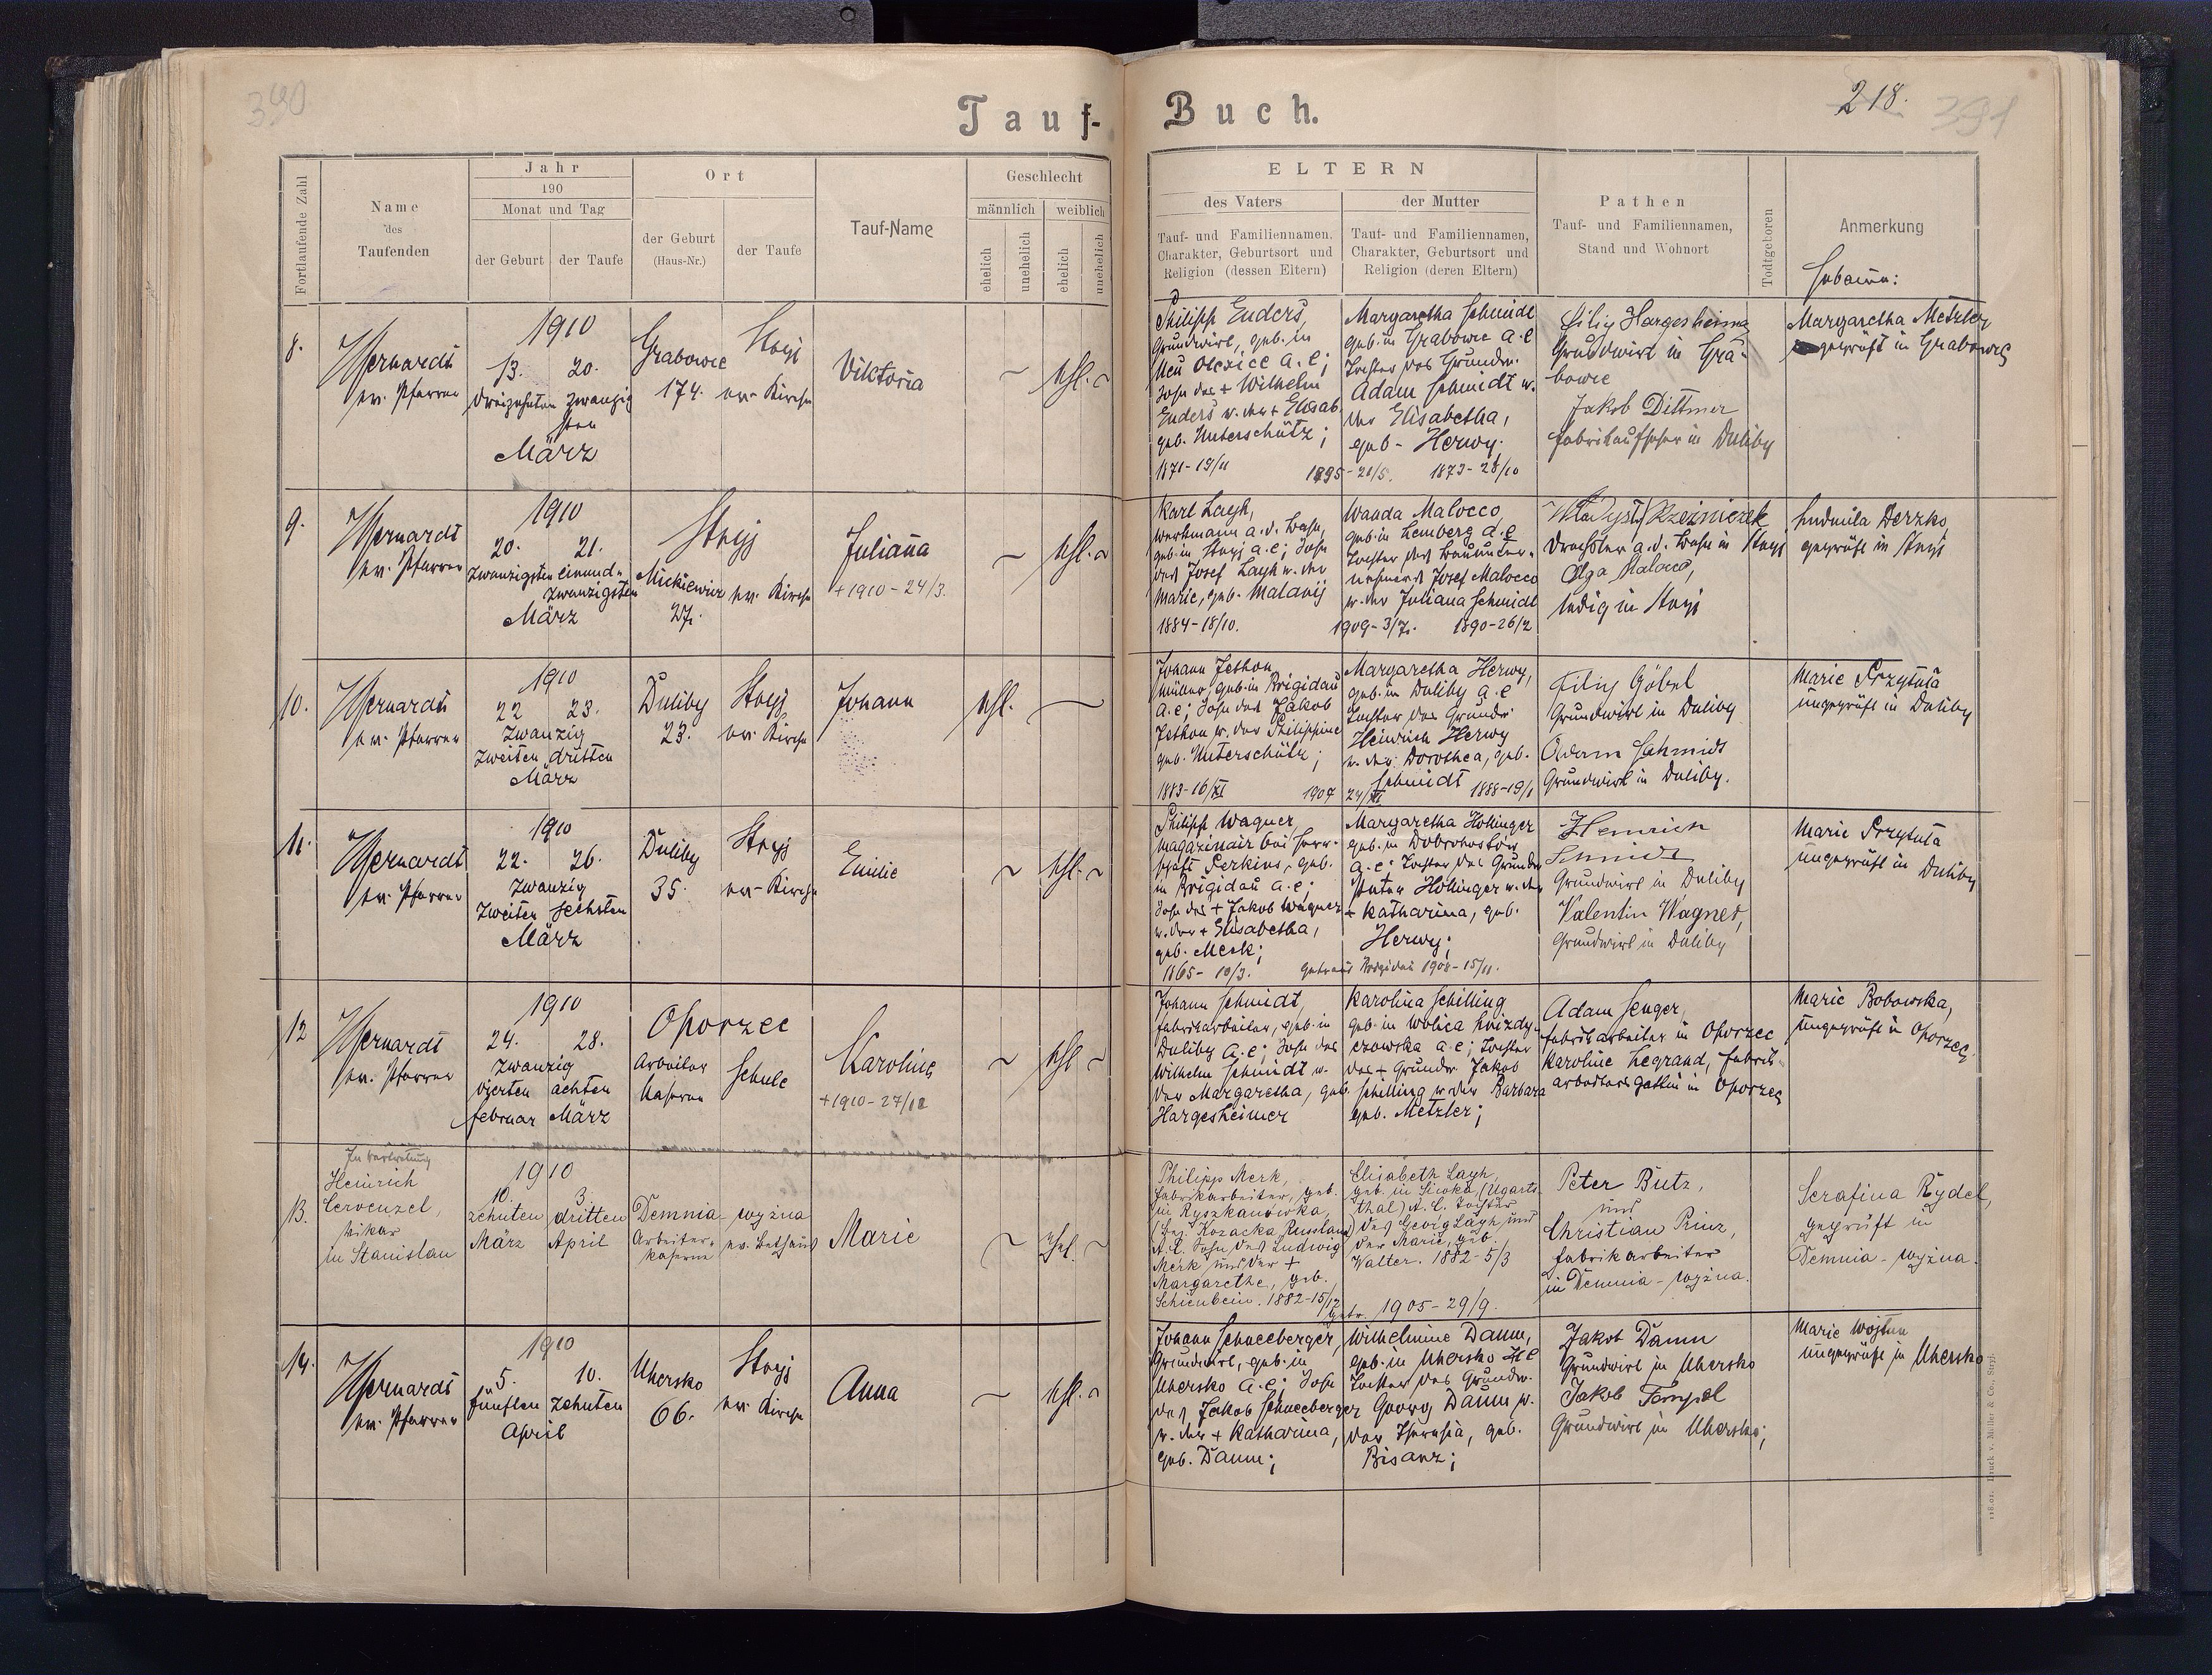 390
218.
391
Tauf-Buch.
Fortlaufende Zahl
Name
des
Taufenden
Jahr
190
Monat und Tag
der Geburt
der Taufe
Ort
der Geburt
(Haus-Nr.)
der Taufe
Tauf-Name
Geschlecht
männlich
weiblich
ehelich
unehelich
ehelich
unehelich
ELTERN
des Vaters
Tauf- und Familiennamen,
Charakter, Geburtsort und
Religion (dessen Eltern)
der Mutter
Tauf- und Familiennamen,
Charakter, Geburtsort und
Religion (deren Eltern)
Pathen
Tauf- und Familiennamen,
Stand und Wohnort
Todtgeboren
Anmerkung
8.
ev. Pfarrer
1910
13. 20.
dreizehnten zwanzig
sten
März
Grabowce
174.
Stryj
ev. Kirche
Viktoria
ehl.
Philipp Enders,
Grundwirt, geb. in
Neu Olexice a. c;
Sohn des + Wilhelm
Enders u. der + Elisab.
geb. Unterschütz;
1871-19/11
1895-21/5.
Margaretha Schmidt
geb. in Grabowce a. c
Tochter des Grundw.
Adam Schmidt u.
der Elisabetha,
geb. Herwy.
1873-28/10
Filip Hargesheimer
Grundwirt in Gra-
bowce
Jakob Dittmer
Fabrikaufseher in Duliby
Margaretha Metzler
geprüft in Grabowce
9.
ev. Pfarrer
1910
20. 21.
Zwanzigsten einund-
zwanzigsten
März
Stryj
Mickiewicz
27.
ev. Kirche
Julianna
+ 1910-24/3.
ehl.
Karl Layh,
Werkmann a. d. Bahn,
geb. in Stryj a. c; Sohn
des Josef Layh u. der
Marie, geb. Matavij
1884-18/10.
1909-3/7.
Wanda Malocco,
geb. in Lemberg a. c
Tochter des Bauunter-
nehmers Josef Malocco
u. der Juliana Schmidt
1890-26/2
Rzezniczek
Drechsler a. d. Bahn in Stryj
Olga Malocco,
ledig in Stryj
Ludmila Derzko,
geprüft in Stryj
10.
ev. Pfarrer
1910
22 23.
Zwanzig
Zweiten dritten
März
Duliby
23.
Stryj
ev. Kirche
Johann
ehl.
Johann Jethon
Müller, geb. in Brigidau
a. c; Sohn des Jakob
Jethon u. der Philippine
geb. Unterschütz;
1883-16/XI
Margaretha Herwy,
geb. in Duliby a. c
Tochter des Grundw.
Heinrich Herwy
u. der Dorothea, geb.
Schmidt 1888-19/1
Filip Göbel
Grundwirt in Duliby
Adam Schmidt
Grundwirt in Duliby.
Marie Przytuła
ungeprüft in Duliby
11.
ev. Pfarrer
1910
22. 26.
Zwanzig
Zweiten sechsten
März
Duliby
35.
Stryj
ev. Kirche
Emilie
ehl.
Philipp Wagner
Magazinair bei Herr-
schaft Perkins, geb.
in Brigidau a. c;
Sohn des + Jakob Wagner
u. der + Elisabetha,
geb. Merk;
1865-10/3.
getraut Brigidau 1908-15/11.
Margaretha Hollinger
geb. in Dobrohostow
a. c; Tochter des Grundw.
Peter Hollinger u. der
+ Katharina, geb.
Herwy;
Heinrich
Schmidt
Grundwirt in Duliby
Valentin Wagner,
Grundwirt in Duliby
Marie Przytuła
ungeprüft in Duliby
12
ev. Pfarrer
1910
24. 28.
Zwanzig
vierten achten
Februar März
Oporzec
Arbeiter
Kaserne
Schule
Karoline
ehl.
Johann Schmidt,
Fabriksarbeiter, geb. in
Duliby a. c; Sohn des
Wilhelm Schmidt u.
der Margaretha, geb.
Hargesheimer
Karolina Schilling
geb. in Wolica hnizdy-
czowska a. c; Tochter
des + Grundw. Jakob
Schilling u. der Barbara
geb. Metzler;
Adam Senger,
Fabriksarbeiter in Oporzec
Karoline Legrand, Fabriks-
arbeitersgattin in Oporzec
Marie Bobowska,
ungeprüft in Oporzec.
13.
In Vertretung
Heinrich
Cervenzel,
Vikar
in Stanislau
1910
10. 3.
zehnten dritten
März April
Demnia-wyżna
Arbeiter-
kaserne
ev. Bethaus
Marie
ehel.
Philipp Merk,
Fabrikarbeiter, geb.
in Ryszkanowka,
(Bez. Kozacka, Russland)
A. C. Sohn des Ludwig
Merk und der +
Margarethe, geb.
Schienbein. 1882-15/12
getr. 1905-29/9.
Elisabeth Layh,
geb. in Siwka (Ugarts-
thal) A. C. Tochter
des Georg Layh und
der Marie, geb.
Walter. 1882-5/3
Peter Butz,
und
Christian Prinz,
Fabrikarbeiter
in Demnia-wyżna.
Serafina Rydel,
geprüft in
Demnia-wyżna.
14.
ev. Pfarrer
1910
5. 10.
fünften zehnten
April
Uhersko
66.
Stryj
ev. Kirche
Anna
ehl.
Johann Schneeberger,
Grundwirt, geb. in
Uhersko a. c; Sohn
des Jakob Schneeberger
u. der + Katharina,
geb. Daum;
Wilhelmine Daum,
geb. in Uhersko H C
Tochter des Grundw.
Georg Daum u.
der Theresia, geb.
Bisanz;
Jakob Daum
Grundwirt in Uhersko
Jakob Tempel
Grundwirt in Uhersko;
Marie
ungeprüft in Uhersko
Druck v. Müller & Co., Stryj.